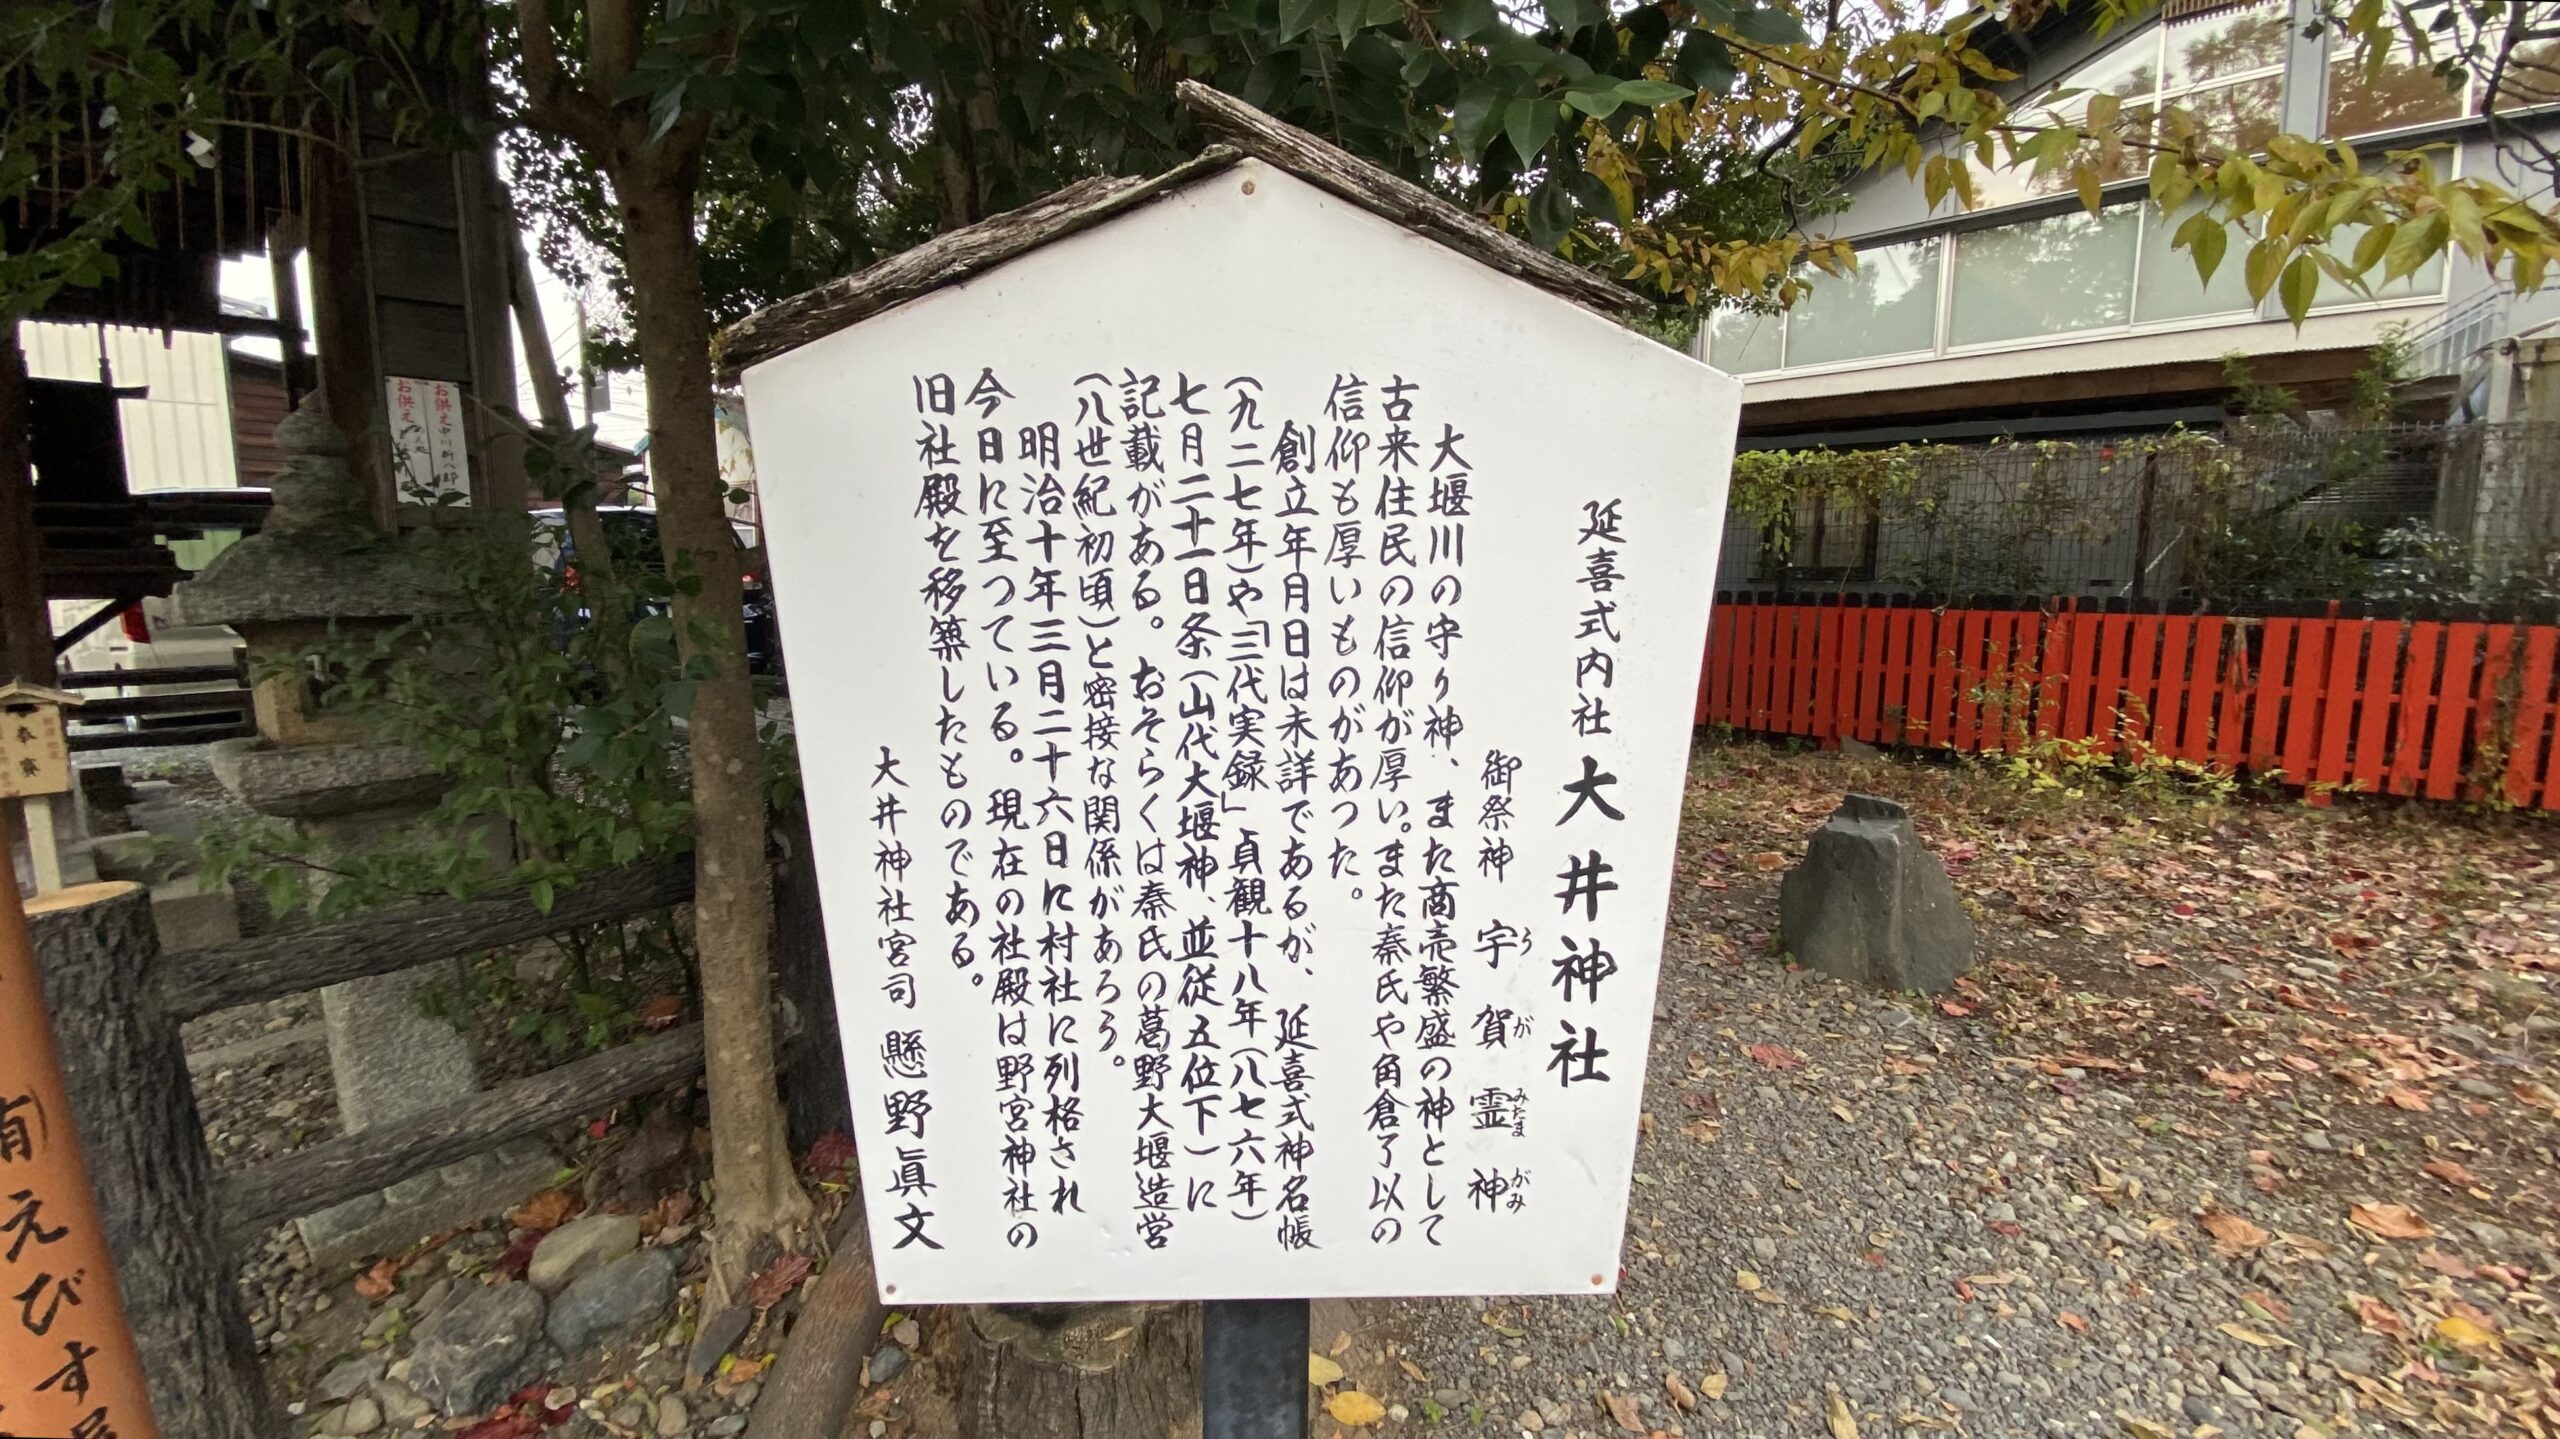 延喜式内社 大井神社
御祭神 宇賀霊神
うがみたまがみ
大堰川の守り神、また商売繁盛の神として
古来住民の信仰が厚い。また秦氏や角倉了以の
信仰も厚いものがあつた。
創立年月日は未詳であるが、延喜式神名帳
(九二七年)や「三代実録」貞観十八年(八七六年)
七月二十一日条(山代大堰神、並従五位下)に
記載がある。おそらくは秦氏の葛野大堰造営
(八世紀初頃)と密接な関係があろう。
明治十年三月二十六日に村社に列格され
今日に至つている。現在の社殿は野宮神社の
旧社殿を移築したものである。
大井神社宮司 懸野眞文
お供え
お供え
奉賽
えびす屋